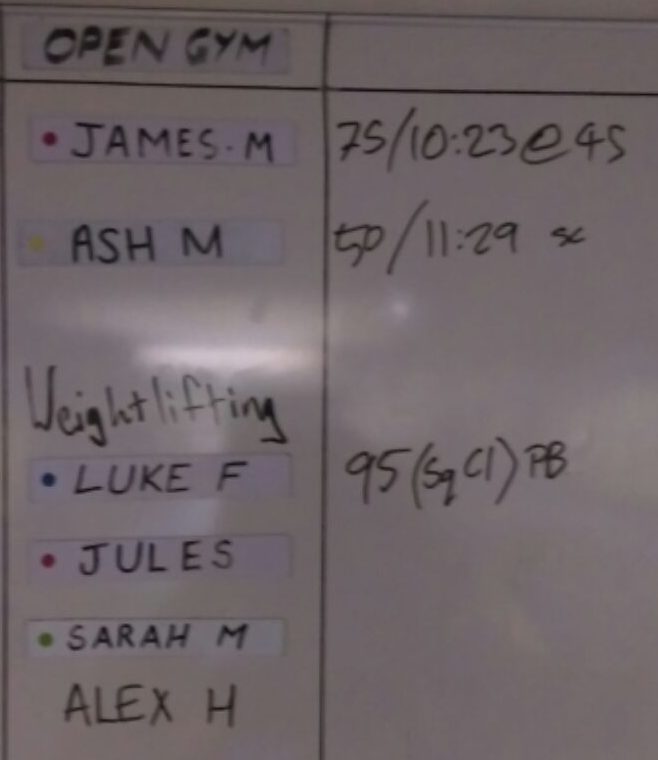 OPEN GYM
• JAMES. M 75/10:23@45
• ASH M 50/11:29 sc
Weightlifting
• LUKE F 95 (Sq Cl) PB
• JULES
• SARAH M
ALEX H